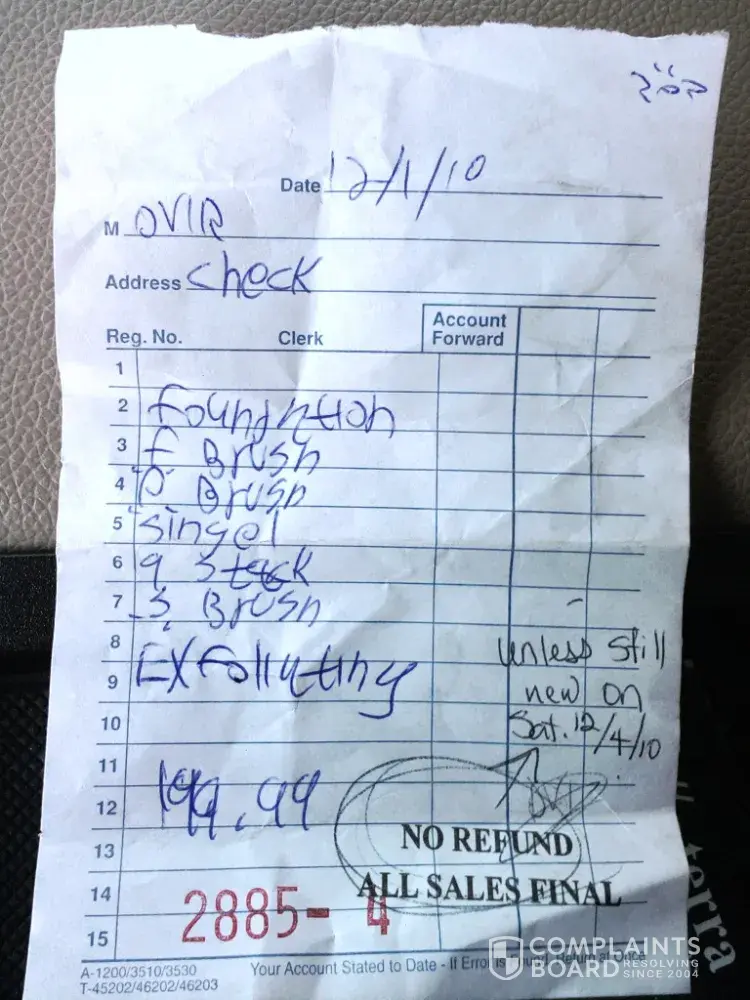 Date 12/1/10
M OVIR
Address check
Reg. No. Clerk Account Forward
1
2 foundation
3 F Brush
4 P Brush
5 singel
6 9 Stack
7 S Brush
8
9 EXfoliyting
unless still
new on
Sat. 12/4/10
10
11
12 199.99
OVIR
13 NO REFUND
14 ALL SALES FINAL
15 2885-4
A-1200/3510/3530
T-45202/46202/46203
Your Account Stated to Date - If Error is Found, Return at Once
terra
COMPLAINTS
BOARD RESOLVING SINCE 2004